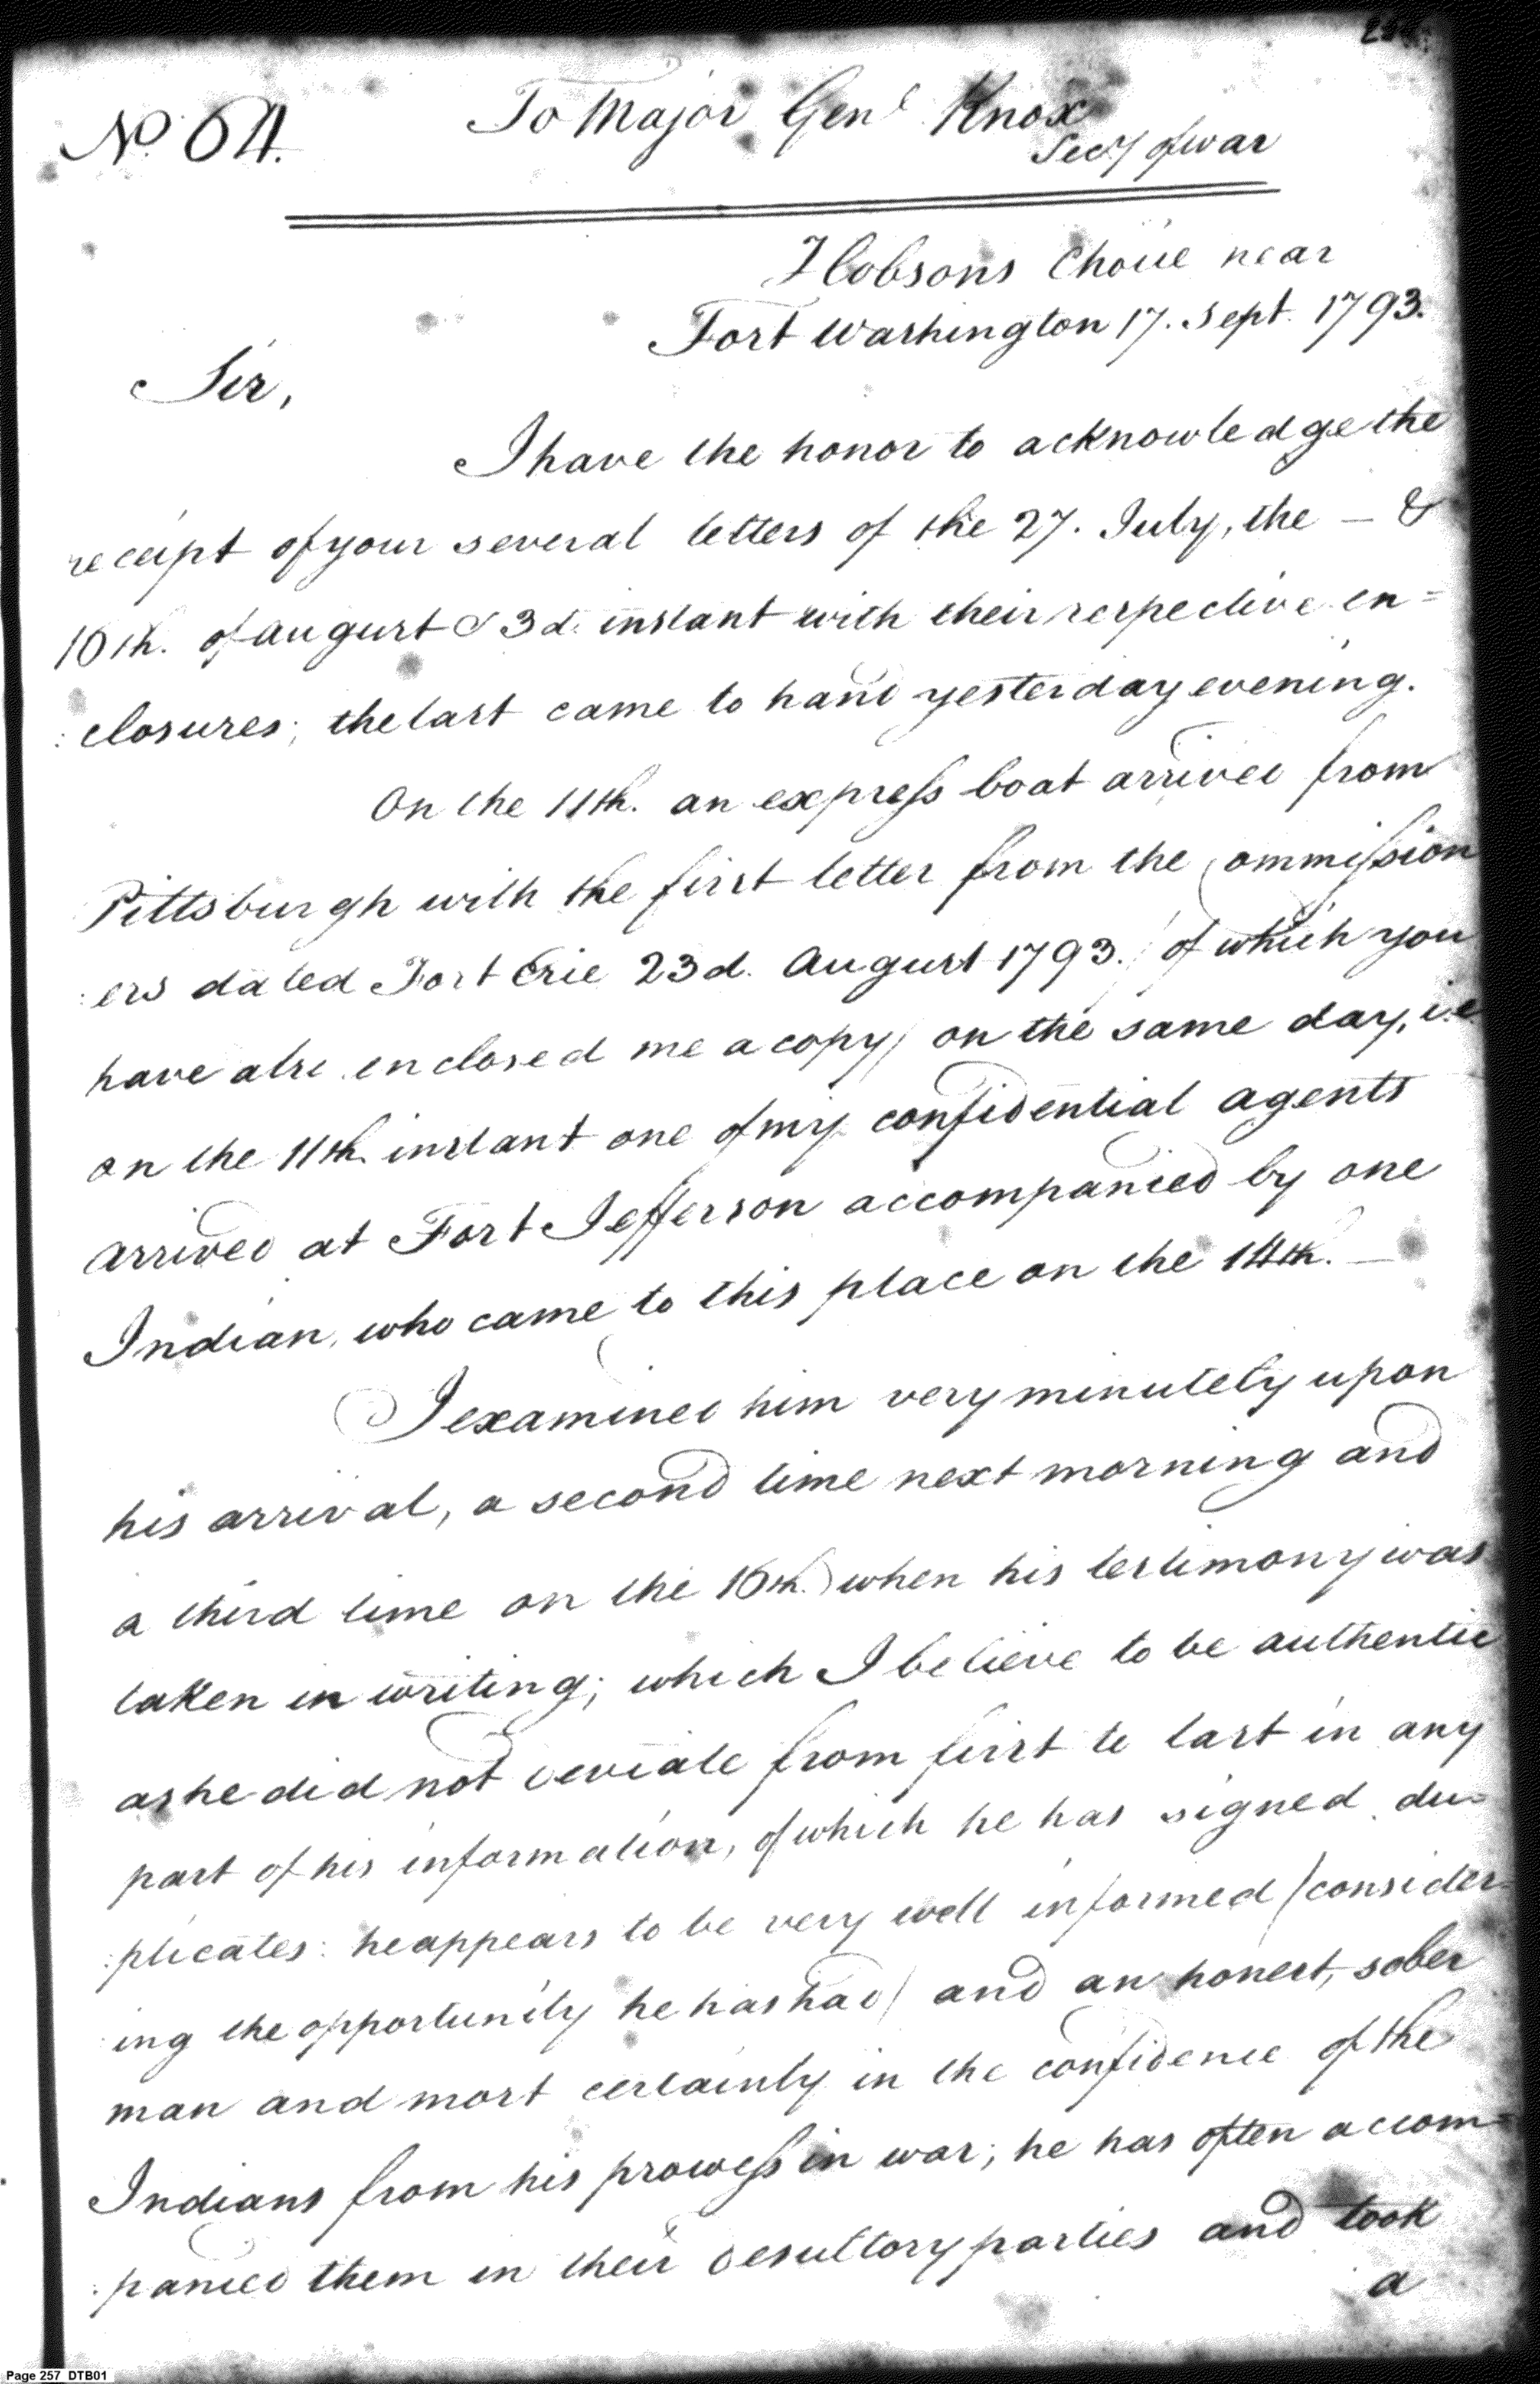 No. 64.
To Major Genl Knox
Secy of war
Hobsons Choice near
Fort Washington 17. Sept. 1793.
Sir,
I have the honor to acknowledge the
receipt of your several letters of the 27. July, the — &
16th. of august & 3d. instant with their respective en=
:closures; the last came to hand yesterday evening.
On the 11th. an express boat arrived from
Pittsburgh with the first letter from the Commission
:ers dated Fort Erie 23d. August 1793. / of which you
have also enclosed me a copy / on the same day, i.e
on the 11th instant one of my confidential agents
arrived at Fort Jefferson accompanied by one
Indian, who came to this place on the 14th. —
I examined him very minutely upon
his arrival, a second time next morning and
a third time on the 16th. when his testimony was
taken in writing; which I believe to be authentic
as he did not deviate from first to last in any
part of his information, of which he has signed du=
:plicates: he appears to be very well informed / consider=
:ing the opportunity he has had / and an honest, sober
man and most certainly in the confidence of the
Indians from his prowess in war; he has often accom=
:panied them in their desultory parties and took
a
Page 257 DTB01